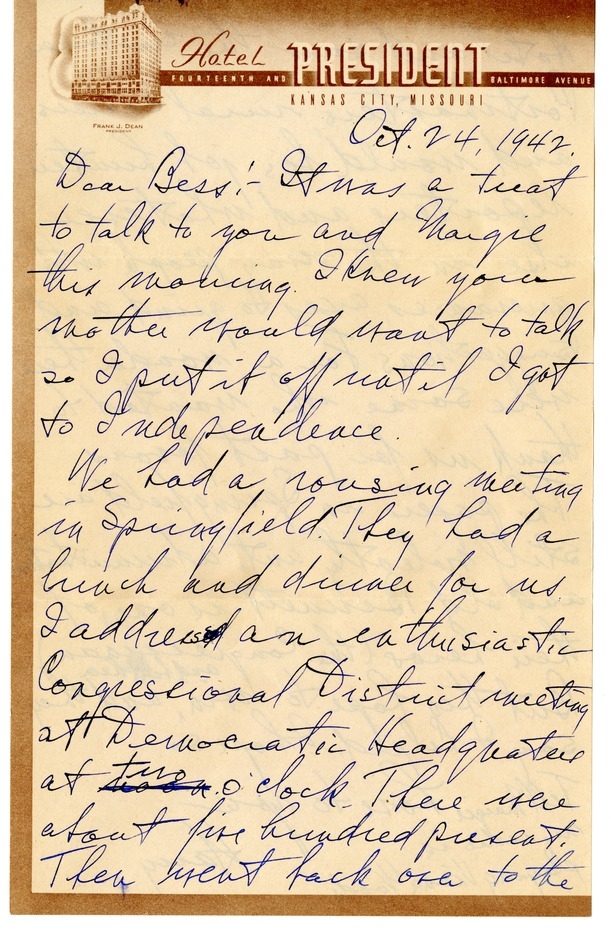 Hotel PRESIDENT
FOURTEENTH AND BALTIMORE AVENUE
KANSAS CITY, MISSOURI
FRANK J. DEAN
PRESIDENT
Oct. 24, 1942.
Dear Bess:- It was a treat
to talk to you and Margie
this morning. I knew your
mother would want to talk
so I put it off until I got
to Independence.
We had a rousing meeting
in Springfield. They had a
lunch and dinner for us.
I addressed an enthusiastic
Congressional District meeting
at Democratic Headquaters
at two o'clock. There were
about five hundred present.
Then went back over to the